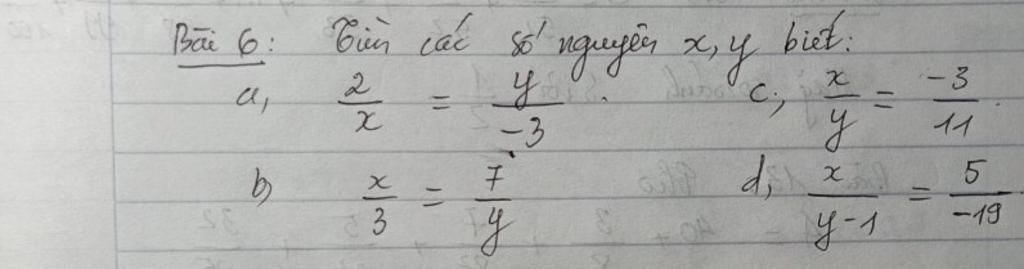 Bài 6: Tìm các số nguyên x, y biết:
a, 2/x = y/-3. c, x/y = -3/11.
b, x/3 = 7/y d, x/y-1 = 5/-19.